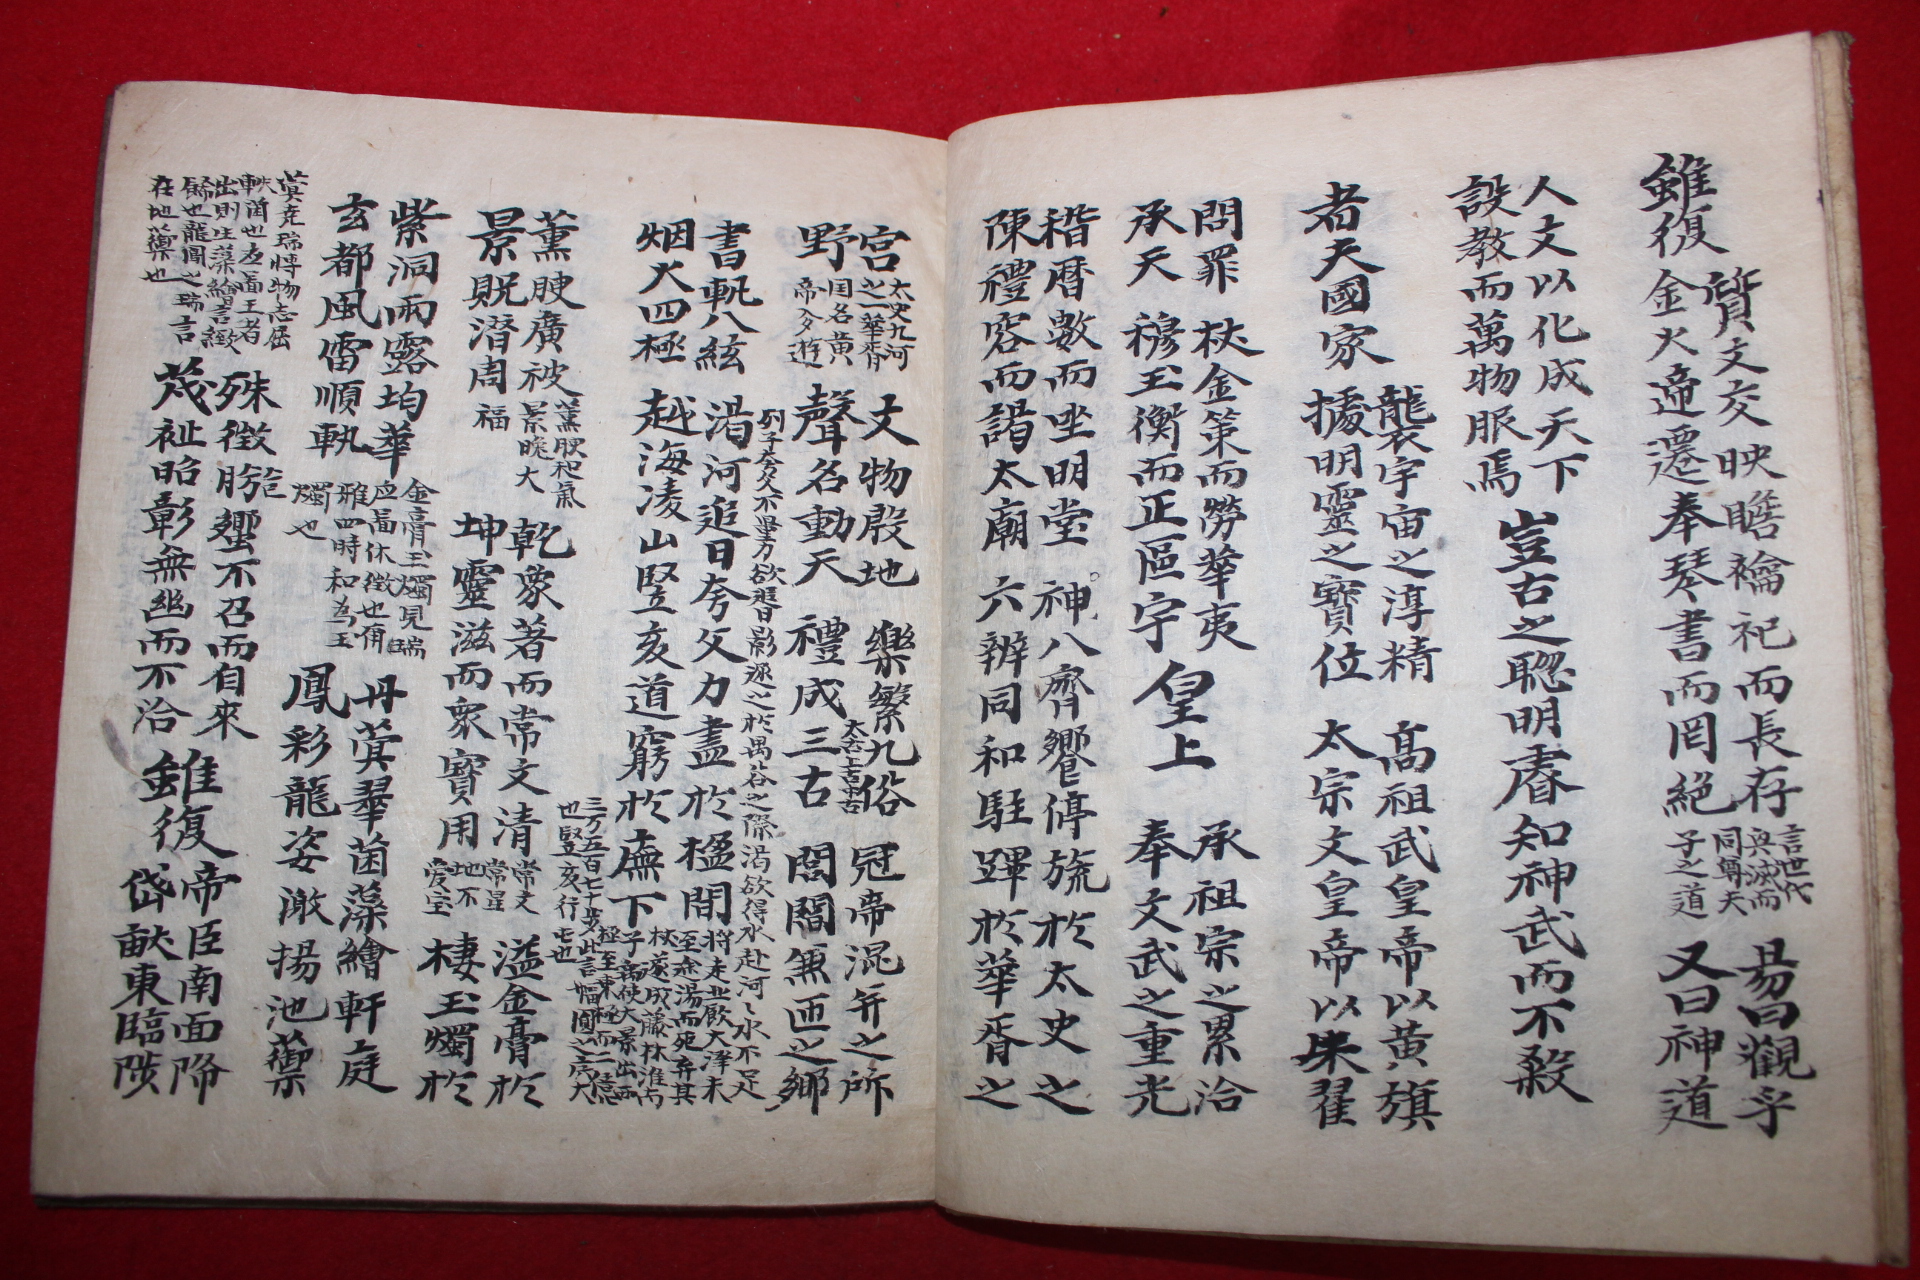 雖復
質文交映瞻禴祀而長存
金火遞遷奉琴書而罔絕
言世代
與滅而
同尊夫
子之道
易曰觀乎
又曰神道
人文以化成天下
設教而萬物服焉
豈古之聡明睿知神武而不殺
者天國家
襲宇宙之淳精
據明靈之寶位
高祖武皇帝以黄旗
太宗文皇帝以朱翟
問罪
承天
杖金策而勞華夷
穆玉衡而正區宇
皇上
承祖宗之累洽
奉文武之重光
稽曆數而坐明堂
陳禮容而謁太廟
神八齊饗停旒於太史之
六辨同和駐蹕於華胥之
宮
野
太史九河
之一華胥
国名黄
帝夕遊
文物殷地
聲名動天
樂繁九俗
禮成三古
冠帝混并之所
閭閻無匝之鄉
書軌八紘
烟火四極
渴河追日夸父力盡於楹間
越海凌山竪亥道窮於廡下
列子夸父不量力欲追日影逐之於禺谷之際渴欲得水赴河〻水不足
將走北飲大澤未
杖遂成藤林淮南
極至東極而二億
三万五百七十步此言幅圓之廣大
也竪亥行
薰腴廣被
景貺潜周
薰腴和氣
景貺大
福
乾象著而常文清
坤靈滋而衆寳用
常文
常星
地不
愛宝
溢金膏於
棲玉燭於
紫洞雨露均華
玄都風雷順軌
金膏玉燭見瑞
应啚休徴也尓
雅四時和為玉
燭也
丹蓂翠菌藻繪軒庭
鳳彩龍姿激揚池籞
蓂尭瑞博物志屈
出則生藻繪言緻
在池籞也
殊徵肹蠁不召而自來
茂祉昭彰無幽而不洽
雖復
帝臣南面降
岱畎東臨陟